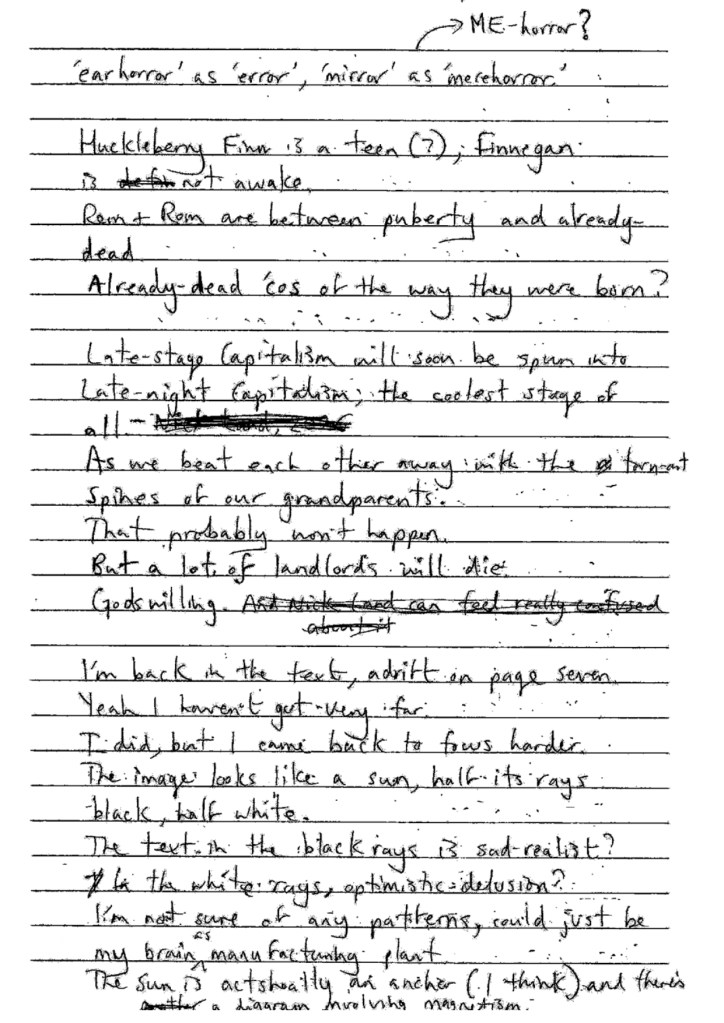 → ME-horror?
'earhorror' as 'error', 'mirror' as 'merehorror.'
Huckleberry Finn is a teen (?); Finnegan
is not awake.
Rom + Rom are between puberty and already-
dead
Already-dead 'cos of the way they were born?
Late-stage Capitalism will soon be spun into
Late-night Capitalism; the coolest stage of
all. –
As we beat each other away with the torn-out
spines of our grandparents.
That probably won't happen.
But a lot of landlords will die.
Gods willing. And Nick Land can feel really confused
about it
I'm back in the text, adrift on page seven.
Yeah I haven't got very far.
I did, but I came back to focus harder.
The image looks like a sun, half its rays
black, half white.
The text in the black rays is sad-realist?
In the white rays, optimistic-delusion?
I'm not sure of any patterns, could just be
my brain as manufacturing plant
The sun is actshually an anchor (I think) and there's
another a diagram involving magnetism.